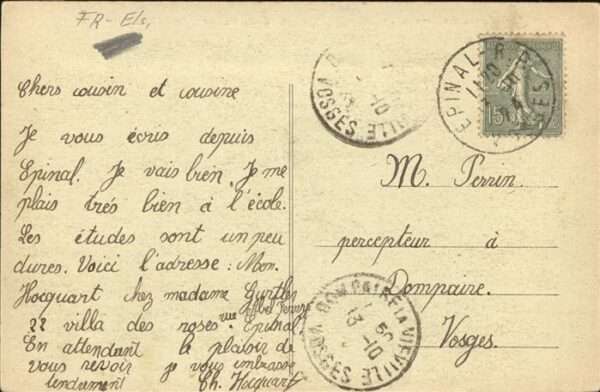 FR-Els,
Chers cousin et cousine
Je vous écris depuis
Epinal. Je vais bien. Je me
plais très bien à l'école.
Les études sont un peu
dures. Voici l'adresse : Mon.
Hocquart chez madame Gurtler
rue Abbel Ferry
22 villa des roses Epinal
En attendant le plaisir de
vous revoir je vous embrasse
tendrement
Ch. Hocquart
M. Perrin
percepteur à
Dompaire.
Vosges.
EPINAL R.P.
VOSGES
15
DOMPAIRE LAVIEVILLE
VOSGES
13-10